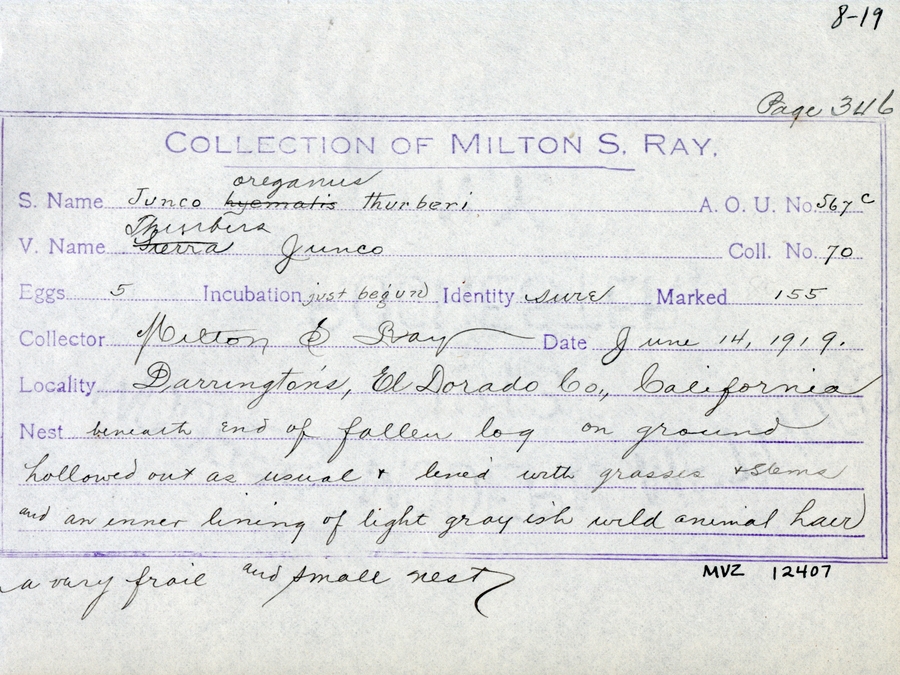 8-19
Page 346
COLLECTION OF MILTON S. RAY.
oreganus
S. Name Junco hyemalis thurberi A. O. U. No. 567c
Thurbers
V. Name Sierra Junco Coll. No. 70
Eggs 5 Incubation just begun Identity sure Marked 155
Collector Milton S Ray Date June 14, 1919.
Locality Darrington's, El Dorado Co., California
Nest beneath end of fallen log on ground
hollowed out as usual + lined with grasses + stems
and an inner lining of light grayish wild animal hair
a vary frail and small nest
MVZ 12407